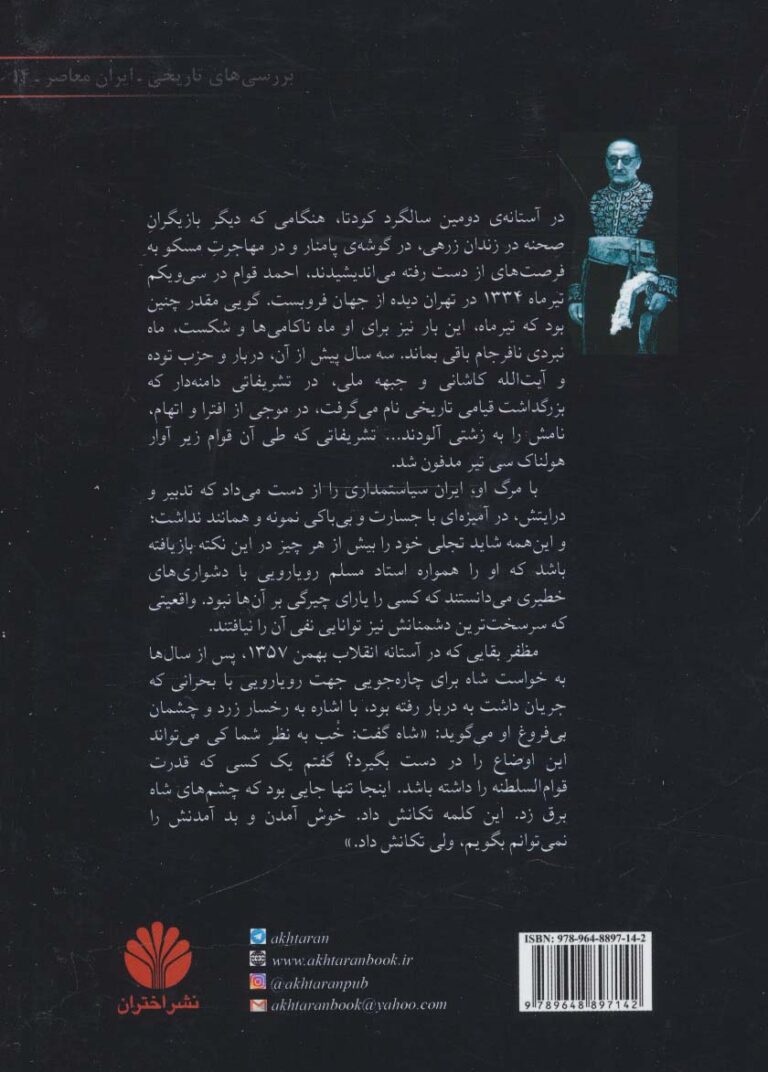 بررسی‌های تاریخی ـ ایران معاصر ـ ۱۴
در آستانه‌ی دومین سالگرد کودتا، هنگامی که دیگر بازیگران
صحنه در زندان زرهی، در گوشه‌ی پامنار و در مهاجرتِ مسکو به
فرصت‌های از دست رفته می‌اندیشیدند، احمد قوام در سی‌ویکم
تیرماه ۱۳۳۴ در تهران دیده از جهان فروبست. گویی مقدر چنین
بود که تیرماه، این بار نیز برای او ماه ناکامی‌ها و شکست، ماه
نبردی نافرجام باقی بماند. سه سال پیش از آن، دربار و حزب توده
و آیت‌الله کاشانی و جبهه ملی، در تشریفاتی دامنه‌دار که
بزرگداشت قیامی تاریخی نام می‌گرفت، در موجی از افترا و اتهام،
نامش را به زشتی آلودند... تشریفاتی که طی آن قوام زیر آوار
هولناک سی تیر مدفون شد.
با مرگ او، ایران سیاستمداری را از دست می‌داد که تدبیر و
درایتش، در آمیزه‌ای با جسارت و بی‌باکی نمونه و همانند نداشت؛
و این‌همه شاید تجلی خود را بیش از هر چیز در این نکته بازیافته
باشد که او را همواره استاد مسلم رویارویی با دشواری‌های
خطیری می‌دانستند که کسی را یارای چیرگی بر آن‌ها نبود. واقعیتی
که سرسخت‌ترین دشمنانش نیز توانایی نفی آن را نیافتند.
مظفر بقایی که در آستانه انقلاب بهمن ۱۳۵۷، پس از سال‌ها
به خواست شاه برای چاره‌جویی جهت رویارویی با بحرانی که
جریان داشت به دربار رفته بود، با اشاره به رخسار زرد و چشمان
بی‌فروغ او می‌گوید: «شاه گفت: خُب به نظر شما کی می‌تواند
این اوضاع را در دست بگیرد؟ گفتم یک کسی که قدرت
قوام‌السلطنه را داشته باشد. اینجا تنها جایی بود که چشم‌های شاه
برق زد. این کلمه تکانش داد. خوش آمدن و بد آمدنش را
نمی‌توانم بگویم، ولی تکانش داد.»
نشر اختران
akhtaran
www.akhtaranbook.ir
@akhtaranpub
akhtaranbook@yahoo.com
ISBN: 978-964-8897-14-2
9 789648 897142